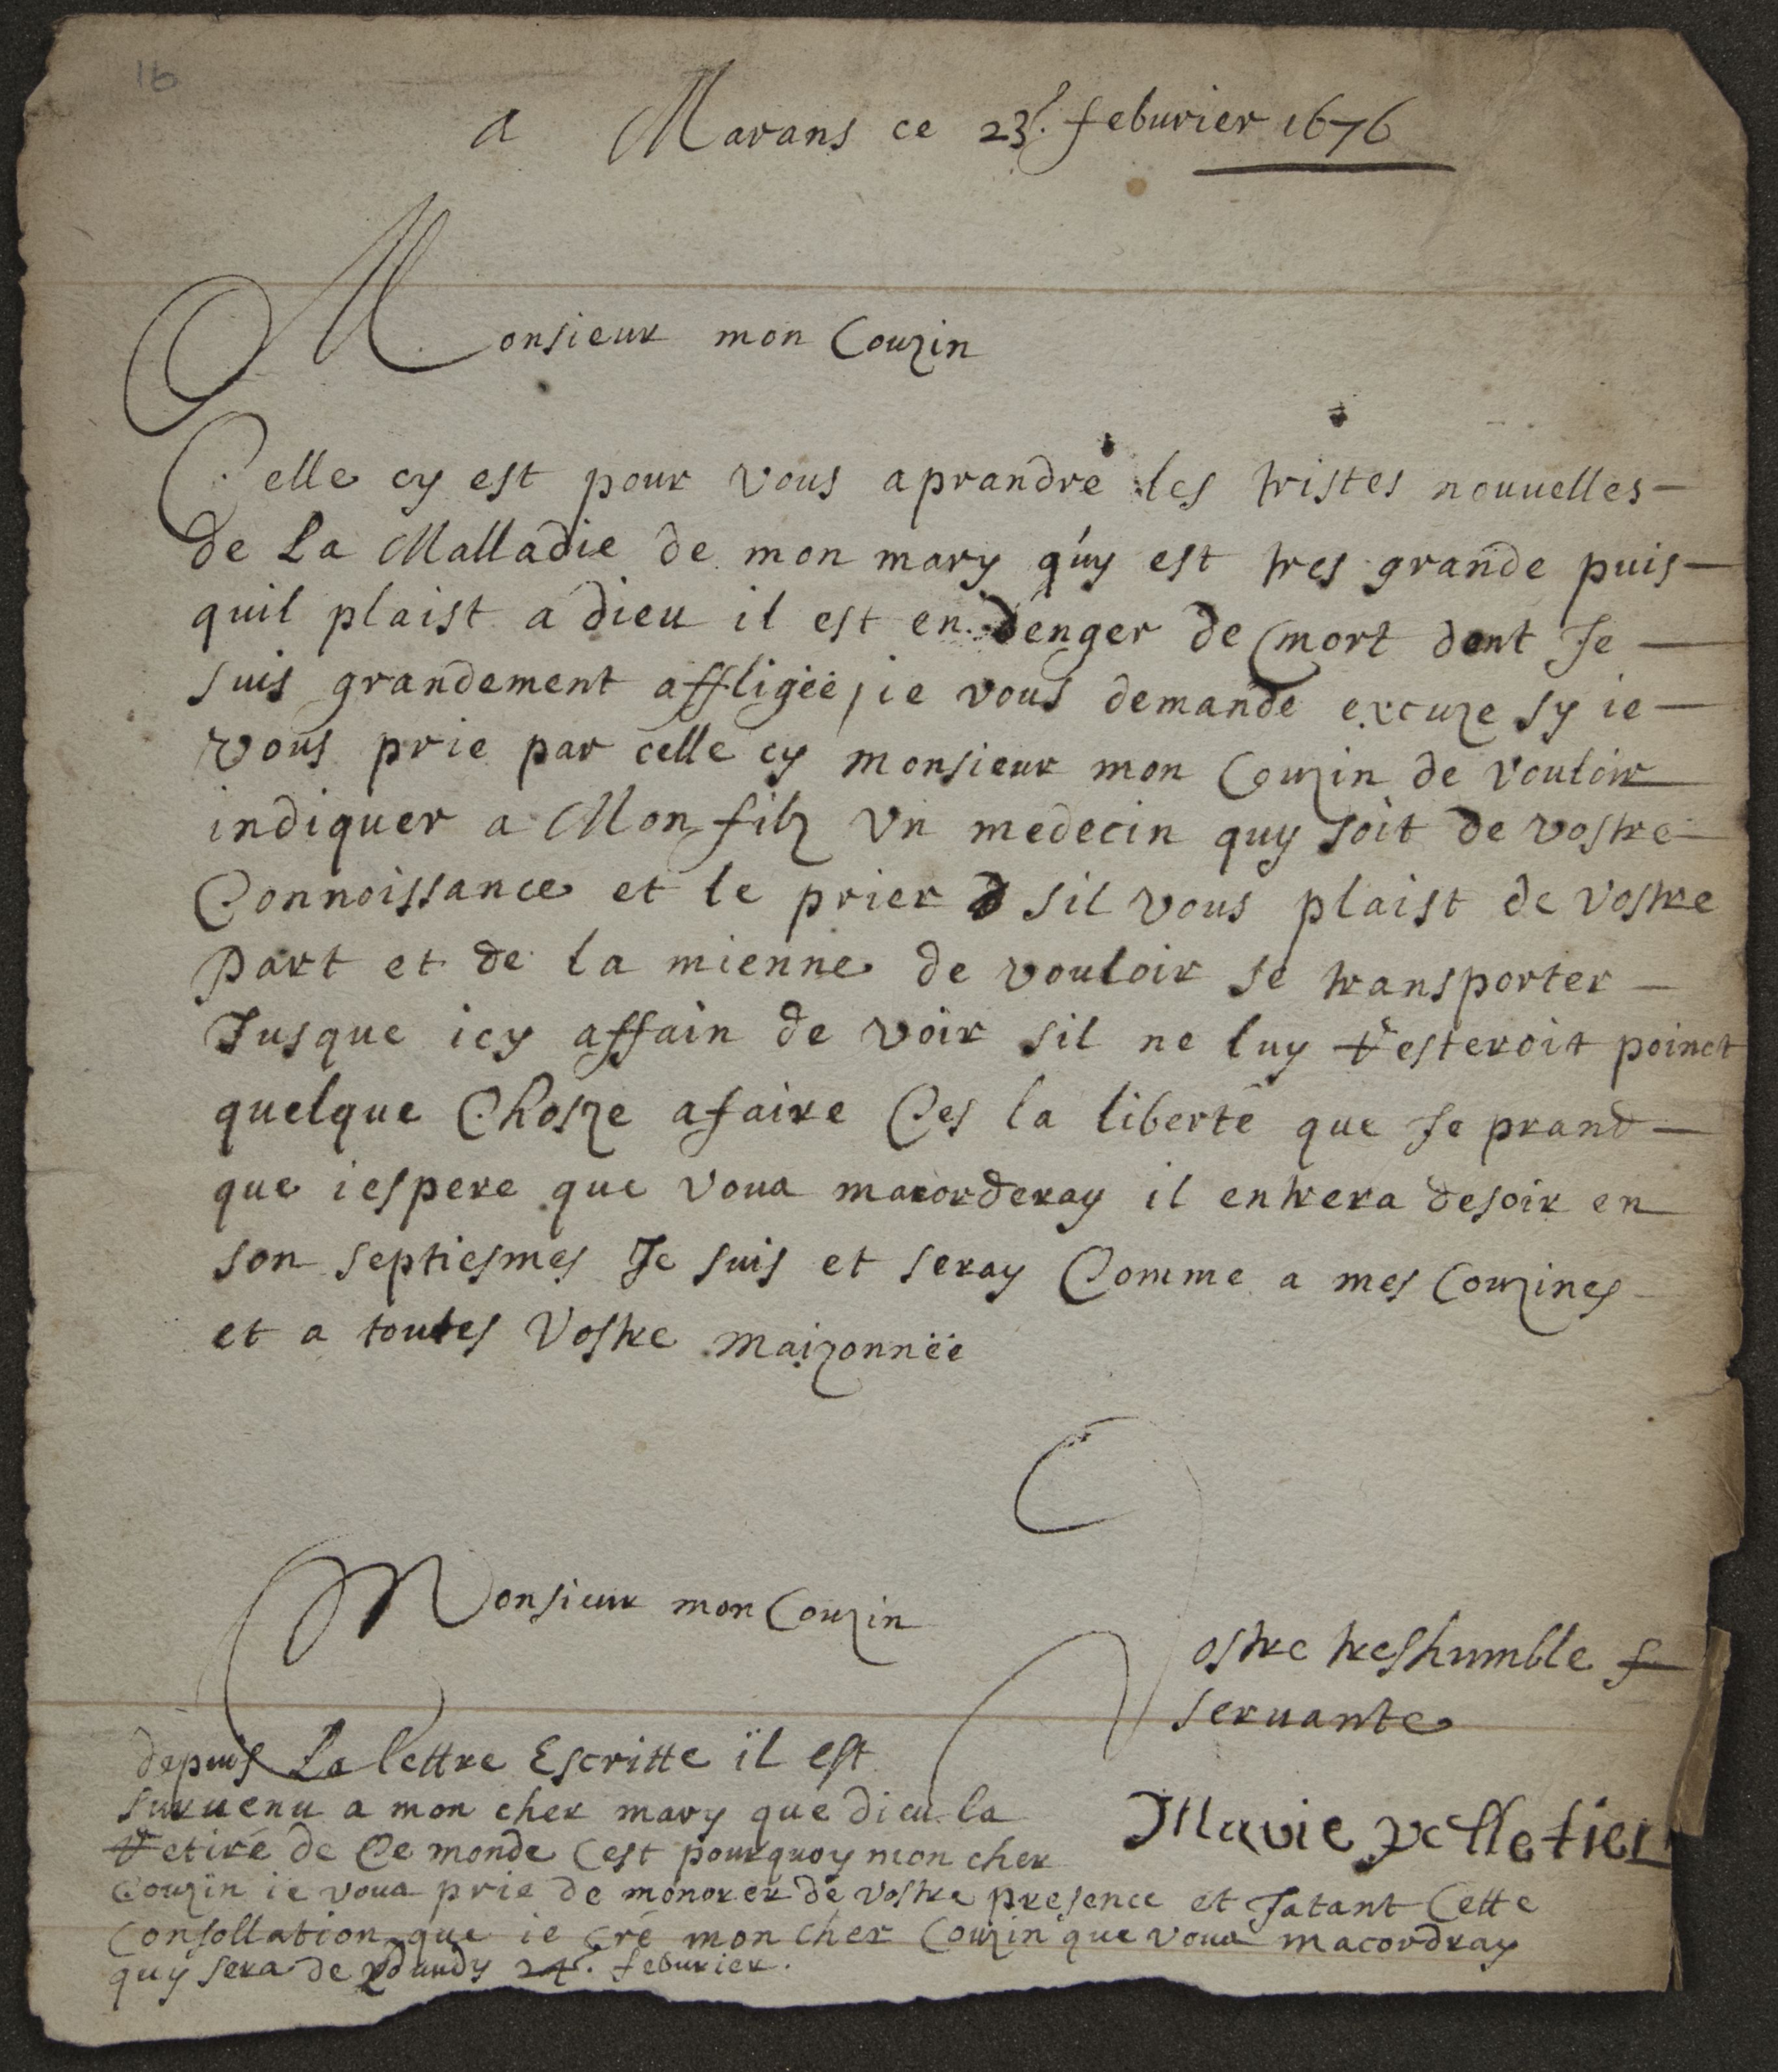 16
a Marans ce 23e. feburier 1676
Monsieur mon Couzin
Celle cy est pour vous aprandre les tristes nouuelles
de La Malladie de mon mary quy est tres grande puis
quil plaist a dieu il est en denger de mort dont Je
suis grandement affligéé, ie vous demande excuze sy ie
vous prie par celle cy monsieur mon Couzin de vouloir
indiquer a Mon filz vn medecin quy soit de vostre
Connoissance et le prier sil vous plaist de vostre
part et de la mienne de vouloir se transporter
Jusque icy affain de voir sil ne luy resteroit poinct
quelque Chosze afaire Ces la liberté que Je prand
que iespere que voua macorderay il entrera desoir en
son septiesmes Je suis et seray Comme a mes Couzines
et a toutes Vostre maizonnéé
Monsieur mon Couzin
Vostre treshumble
seruante
Marie pelletier
depuis La lettre Escritte il est
suruenu a mon cher mary que dieu la
retiré de Ce monde Cest pourquoy mon cher
Couzin ie voua prie de monorer de vostre presence et Jatant Cette
Consollation que ie cré mon cher Couzin que voua macordray
quy sera de 24e. feburier.